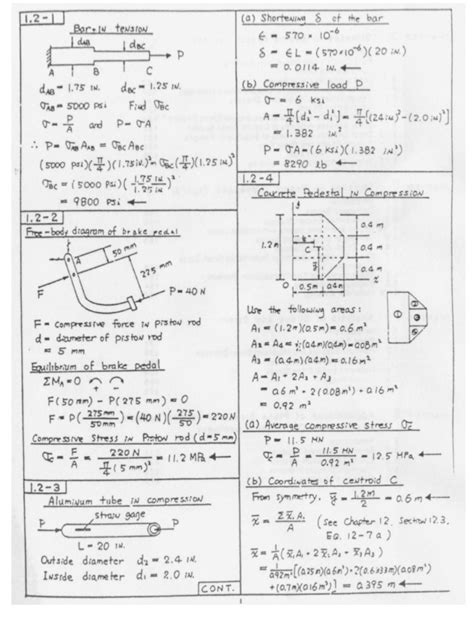 1.2-1
Bar in tension
dAB dBC
P
A B C
dAB = 1.75 in. dBC = 1.25 in.
σAB = 5000 psi Find σBC
σ = P/A and P = σA
∴ P = σAB AAB = σBC ABC
(5000 psi)(π/4)(1.75 in.)² = σBC (π/4)(1.25 in.)²
σBC = (5000 psi)(1.75 in/1.25 in)²
= 9800 psi ←
1.2-2
Free-body diagram of brake pedal
50 mm
A
225 mm
F
P = 40 N
F = compressive force in piston rod
d = diameter of piston rod
= 5 mm
Equilibrium of brake pedal
ΣMA = 0
F(50 mm) - P(275 mm) = 0
F = P(275 mm/50 mm) = (40 N)(275/50) = 220 N
Compressive stress in piston rod (d = 5 mm)
σc = F/A = 220 N / (π/4)(5 mm)² = 11.2 MPa ←
1.2-3
Aluminum tube in compression
strain gage
P P
L = 20 in.
Outside diameter d2 = 2.4 in.
Inside diameter d1 = 2.0 in.
CONT.
(a) Shortening δ of the bar
ε = 570 × 10⁻⁶
δ = εL = (570×10⁻⁶)(20 in.)
= 0.0114 in. ←
(b) Compressive load P
σ = 6 ksi
A = π/4[d2² - d1²] = π/4[(2.4 in.)² - (2.0 in.)²]
= 1.382 in.²
P = σA = (6 ksi)(1.382 in.²)
= 8290 lb ←
1.2-4
Concrete Pedestal in Compression
0.4 m
1.2 m
C
0.4 m
0.4 m
O 0.5 m 0.4 m
Use the following areas:
A1 = (1.2 m)(0.5 m) = 0.6 m²
A2 = A4 = ½(0.4 m)(0.4 m) = 0.08 m²
A3 = (0.4 m)(0.4 m) = 0.16 m²
A = A1 + 2A2 + A3
= 0.6 m² + 2(0.08 m²) + 0.16 m²
= 0.92 m²
(a) Average compressive stress σc
P = 11.5 MN
σc = P/A = 11.5 MN / 0.92 m² = 12.5 MPa ←
(b) Coordinates of centroid C
From symmetry, ȳ = 1.2 m/2 = 0.6 m ←
x̄ = Σx̄iAi/A (See Chapter 12, Section 12.3,
Eq. 12-7a)
x̄ = 1/A(x̄1A1 + 2x̄2A2 + x̄3A3)
= 1/0.92 m²[(0.25 m)(0.6 m²) + 2(0.6333 m)(0.08 m²)
+ (0.7 m)(0.16 m²)] = 0.395 m ←
1